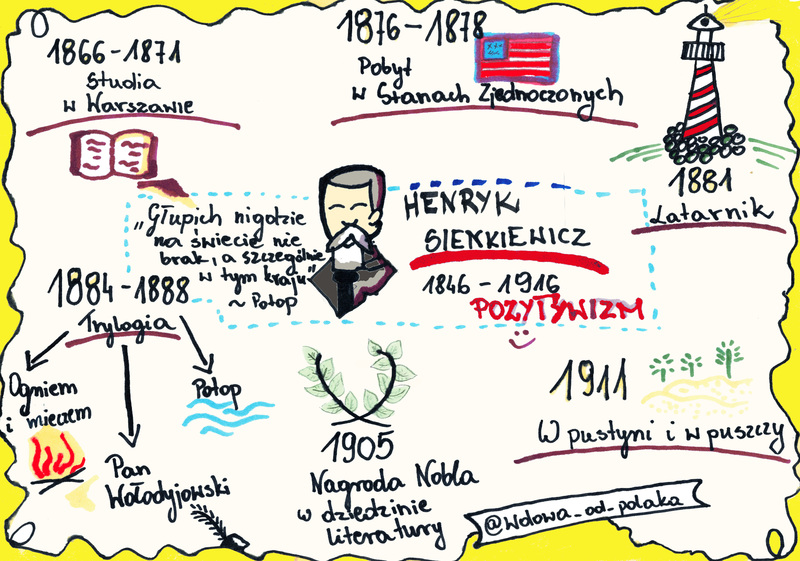 1866-1871
Studia
w Warszawie
1876-1878
Pobyt
w Stanach Zjednoczonych
1881
Latarnik
„Głupich nigdzie
na świecie nie
brak, a szczególnie
w tym kraju"
~ Potop
HENRYK
SIENKIEWICZ
1846-1916
POZYTYWIZM
1884-1888
Trylogia
Ogniem
i mieczem
Pan
Wołodyjowski
Potop
1905
Nagroda Nobla
w dziedzinie
literatury
1911
W pustyni i w puszczy
@wdowa_od_polaka